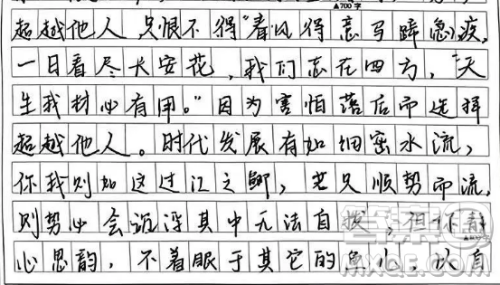 ▲700字
超越他人，只恨不得“春风得意马蹄急疾，
一日看尽长安花，我们志在四方，“天
生我材必有用。”因为害怕落后而选择
超越他人。时代发展有如细密水流，
你我则如这过江之鲫，若只顺势而流，
则势必会沉浮其中无法自拔，但怀静
心思韵，不着眼于其它的鱼儿，以自
MXQE.COM